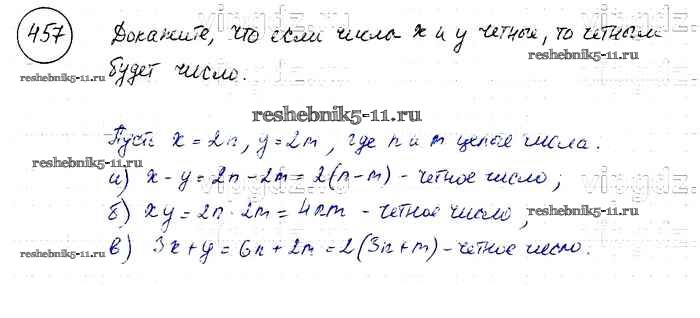 457 Докажите, что если числа x и y четные, то четным
будет число.
reshebnik5-11.ru
reshebnik5-11.ru
reshebnik5-11.ru
Пусть x = 2n, y = 2m, где n и m целые числа.
reshebnik5-11.ru
а) x - y = 2n - 2m = 2(n-m) - четное число;
б) xy = 2n · 2m = 4nm - четное число;
reshebnik5-11.ru
в) 3x + y = 6n + 2m = 2(3n + m) - четное число.
reshebnik5-11.ru